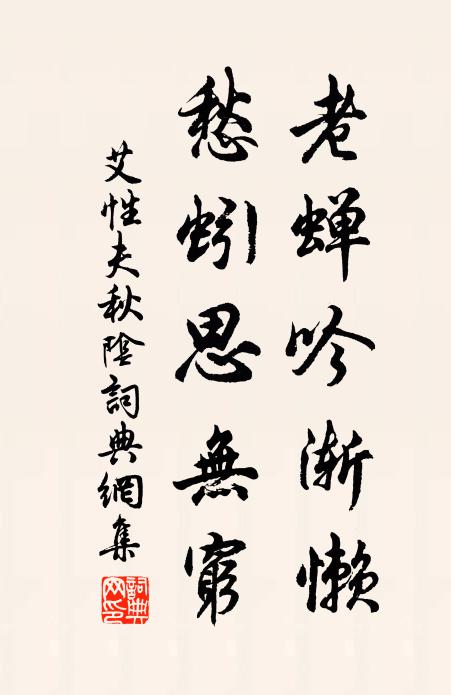 老蝉吟漸懶
愁蚓思無窮
艾性夫秋陰詞典網集
詞典
网印